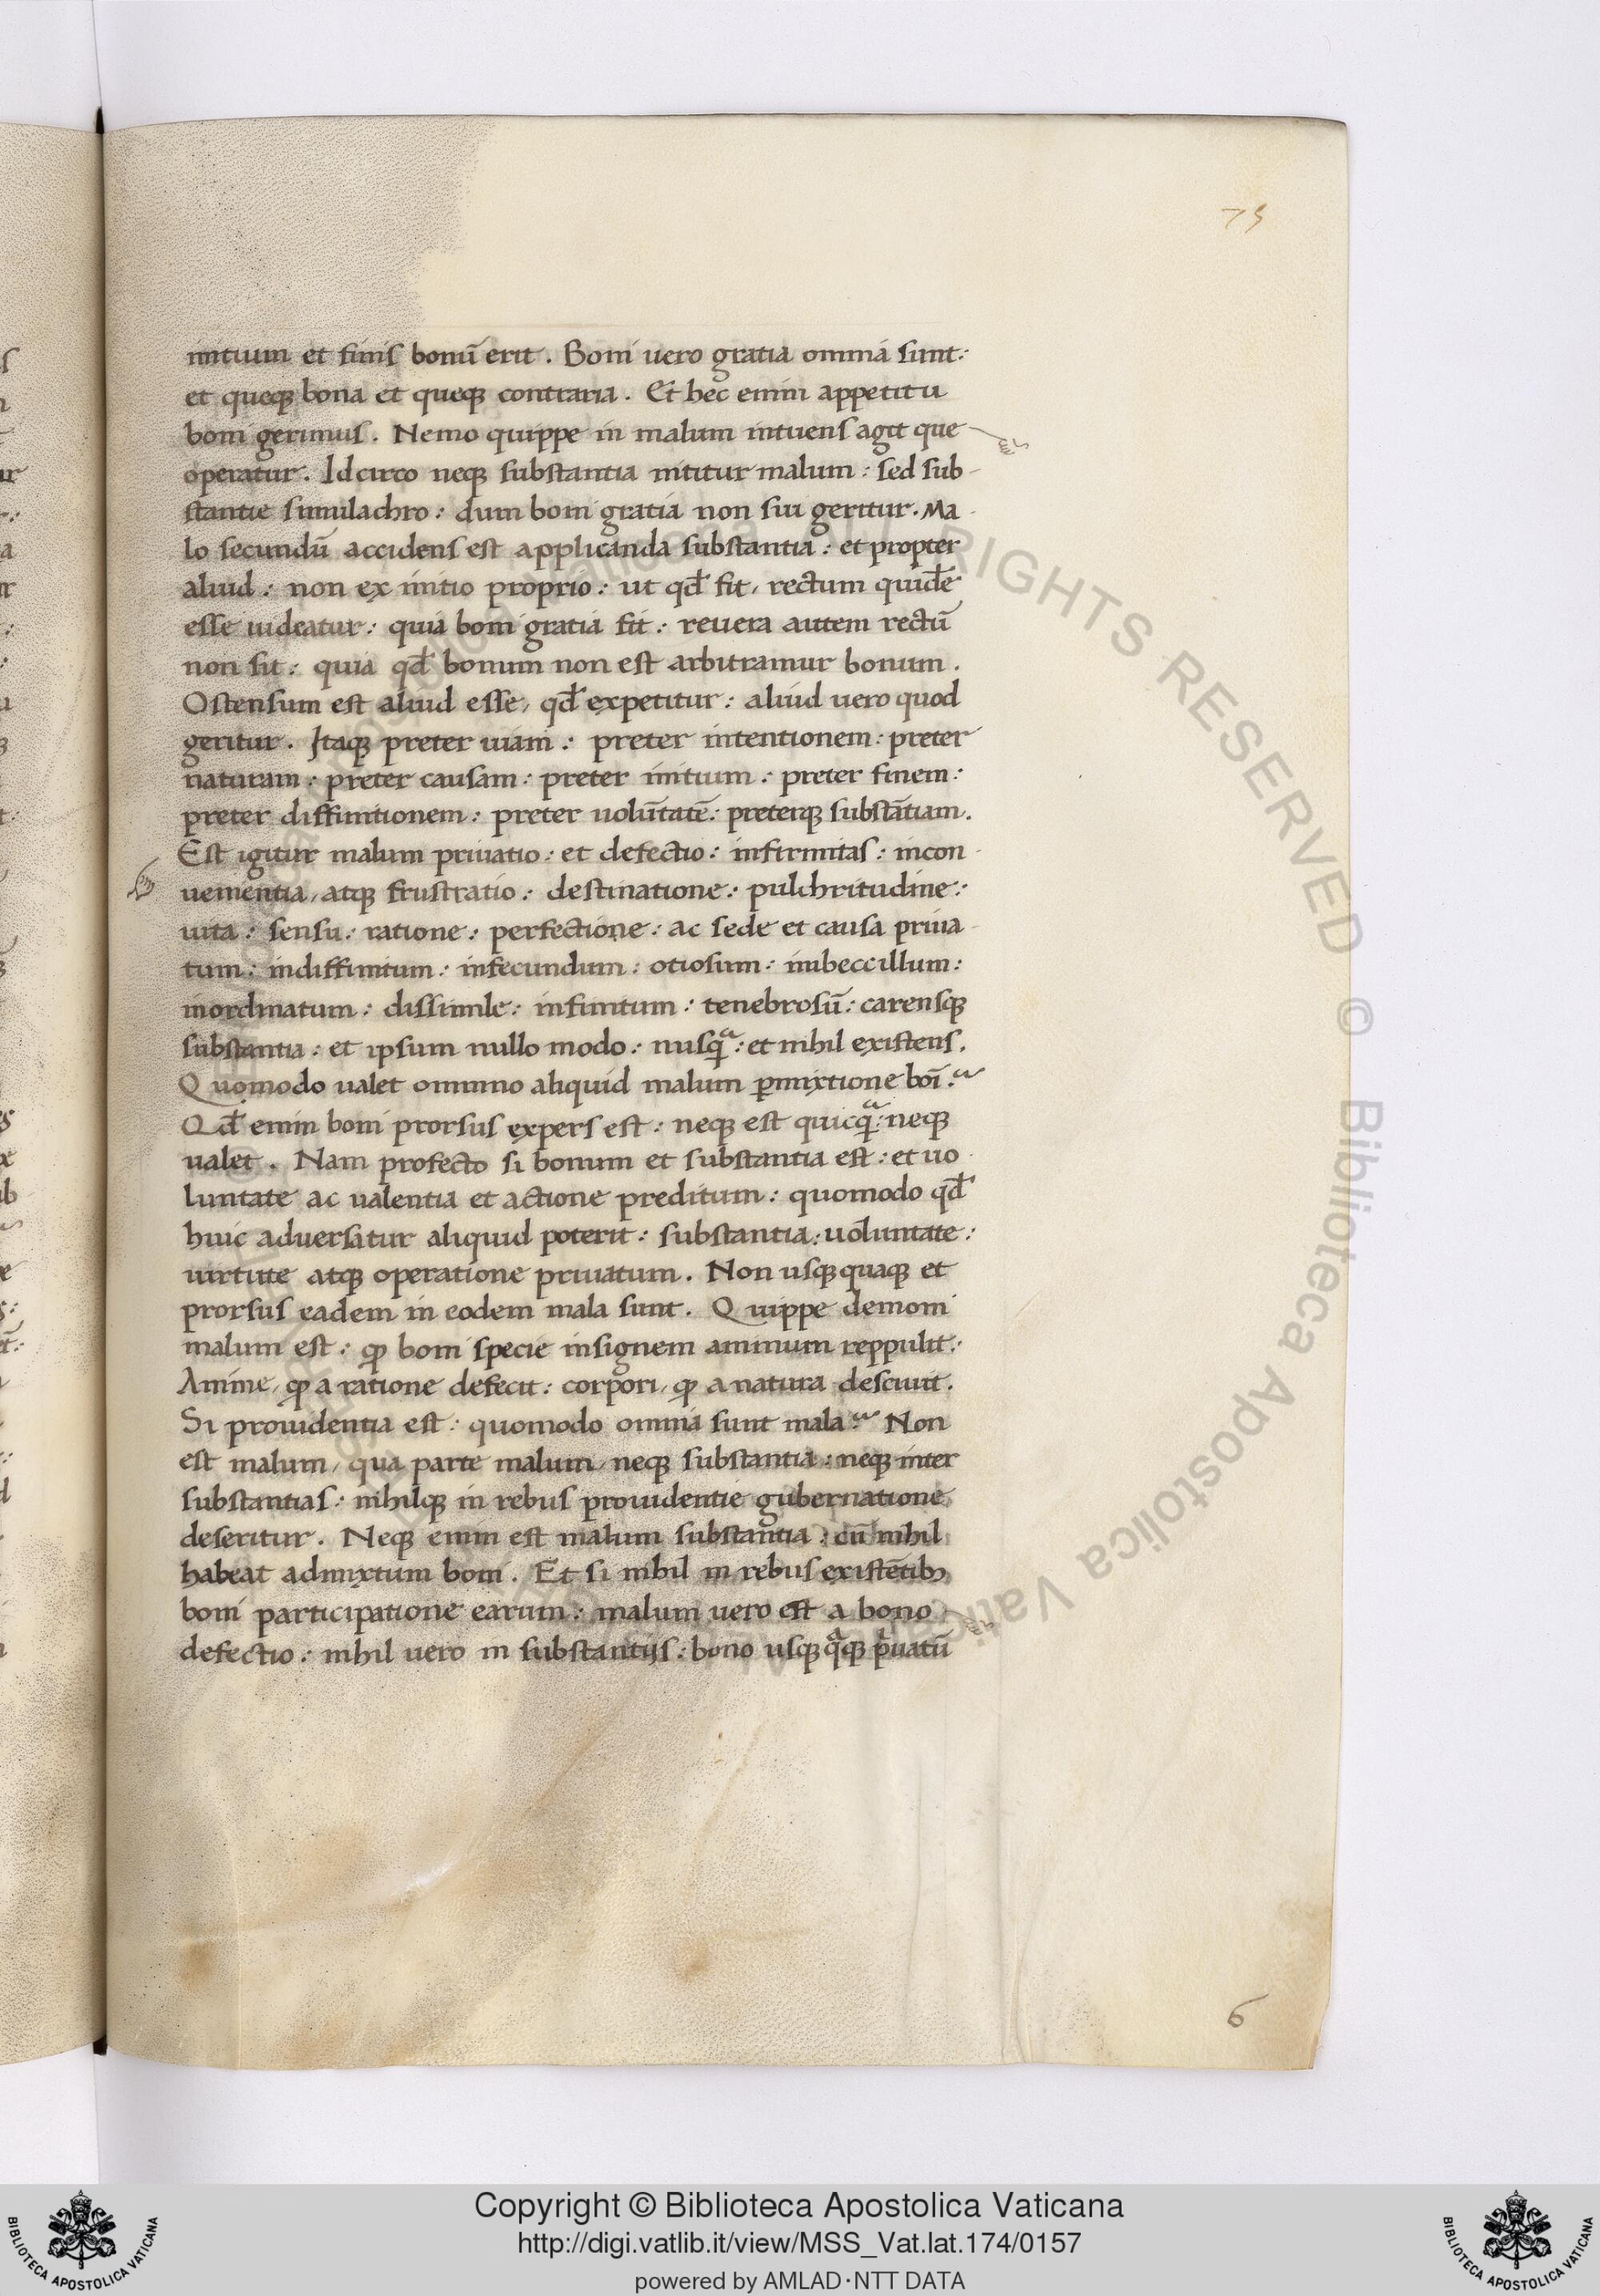 75
initium et finis bonū erit. Boni uero gratia omnia sunt:
et queqȝ bona et queqȝ contraria. Et hec enim appetitu
boni gerimus. Nemo quippe in malum intuens agit que
operatur. Idcirco neqȝ substantia nititur malum: sed sub-
stantie simulachro: dum boni gratia non sui geritur. Ma-
lo secundū accidens est applicanda substantia: et propter
aliud: non ex initio proprio: ut qđ fit, rectum quidē
esse uideatur: quia boni gratia fit: reuera autem rectū
non sit: quia qđ bonum non est arbitramur bonum.
Ostensum est aliud esse, qđ expetitur: aliud uero quod
geritur. Itaqȝ preter uiam: preter intentionem: preter
naturam: preter causam: preter initium: preter finem:
preter diffinitionem: preter uolūtatē: preterqȝ substātiam.
Est igitur malum priuatio: et defectio: infirmitas: incon-
uenientia, atqȝ frustratio: destinatione: pulchritudine:
uita: sensu: ratione: perfectione: ac sede et causa priua-
tum: indiffinitum: infecundum: otiosum: imbeccillum:
inordinatum: dissimile: infinitum: tenebrosū: carensqȝ
substantia: et ipsum nullo modo: nusqᵃ: et nihil existens.
Quomodo ualet omnino aliquid malum ꝑmixtione boī?
Qđ enim boni prorsus expers est: neqȝ est quicqᵃ: neqȝ
ualet. Nam profecto si bonum et substantia est: et uo-
luntate ac ualentia et actione preditum: quomodo qđ
huic aduersatur aliquid poterit: substantia: uoluntate:
uirtute atqȝ operatione priuatum. Non usqȝquaqȝ et
prorsus eadem in eodem mala sunt. Quippe demoni
malum est: ꝙ boni specie insignem animum reppulit:
Anime, ꝙ a ratione defecit: corpori, ꝙ a natura desciuit.
Si prouidentia est: quomodo omnia sunt mala? Non
est malum, qua parte malum, neqȝ substantia: neqȝ inter
substantias: nihilqȝ in rebus prouidentie gubernatione
deseritur. Neqȝ enim est malum substantia: cū nihil
habeat admixtum boni. Et si nihil in rebus existētibȝ
boni participatione earum: malum uero est a bono
defectio: nihil uero in substantijs: bono usqȝqᵃqȝ pⁱuatū
6
ALL RIGHTS RESERVED © Biblioteca Apostolica Vaticana
Copyright © Biblioteca Apostolica Vaticana
http://digi.vatlib.it/view/MSS_Vat.lat.174/0157
powered by AMLAD·NTT DATA
BIBLIOTECA APOSTOLICA VATICANA
BIBLIOTECA APOSTOLICA VATICANA